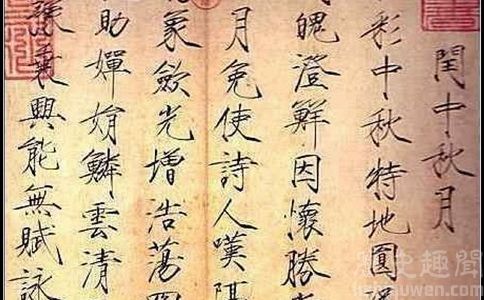 閏中秋月
彩中秋特地圓況
魄澄鮮因懷勝賞
月免使詩人嘆隔
象斂光增浩蕩四
助嬋娟鱗雲清
豫乘興能無賦詠